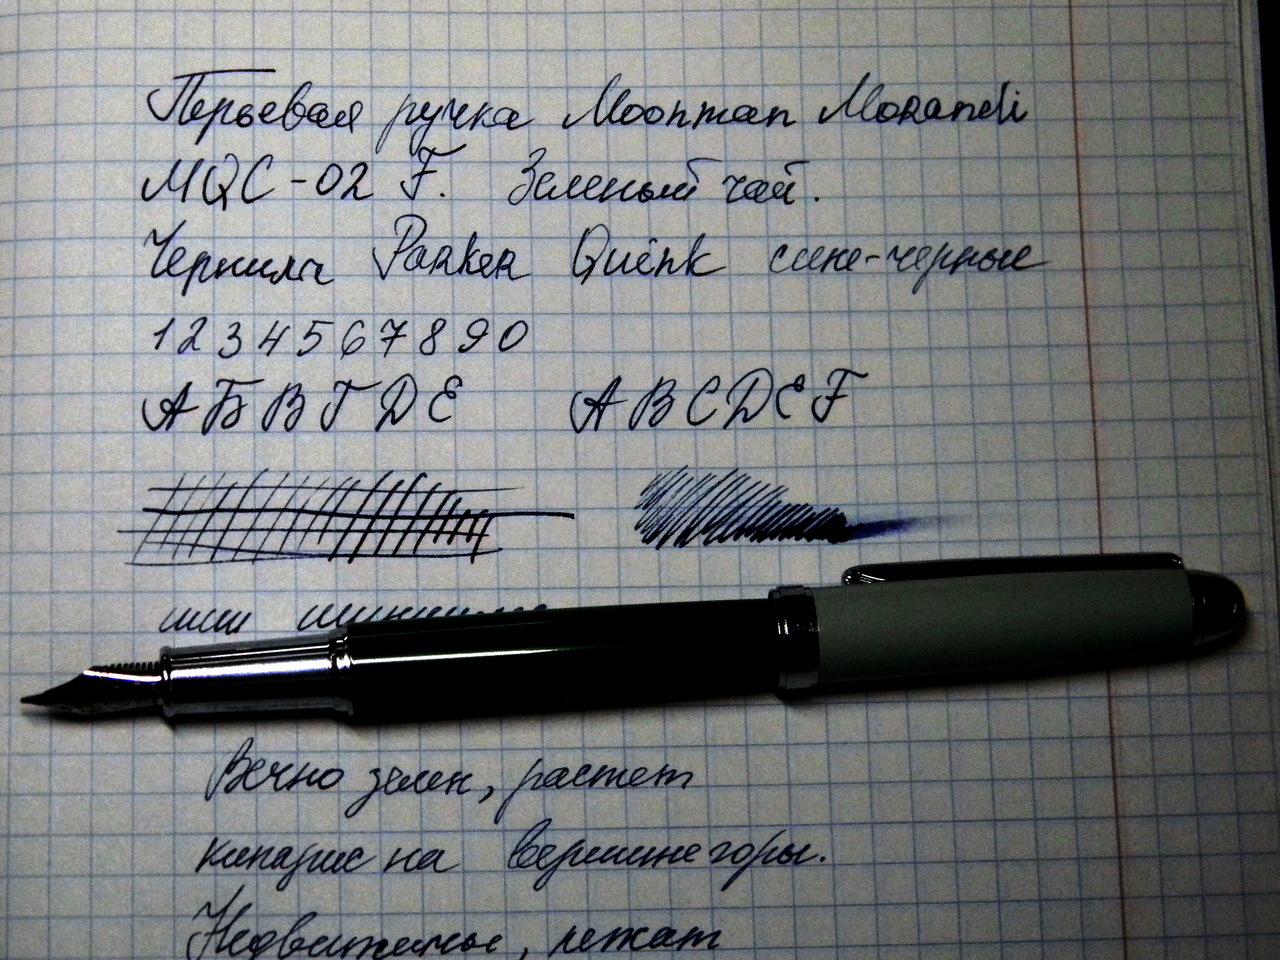 Перьевая ручка Moonman Morandi
MQC-02 F. Зеленый чай.
Чернила Parker Quink сине-черные
1 2 3 4 5 6 7 8 9 0
А Б В Г Д Е A B C D E F
Вечно зелен, растет
кипарис на вершине горы.
Недвижимые, лежат